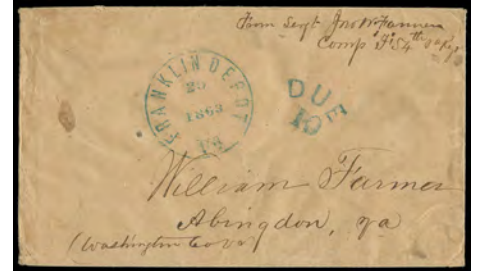 From Sergt Jno W Farmer
Comp F 54th Va Reg
FRANKLIN DEPOT
20
1863
VA
DUE
10
William Farmer
Abingdon, Va
(Washington Co Va)